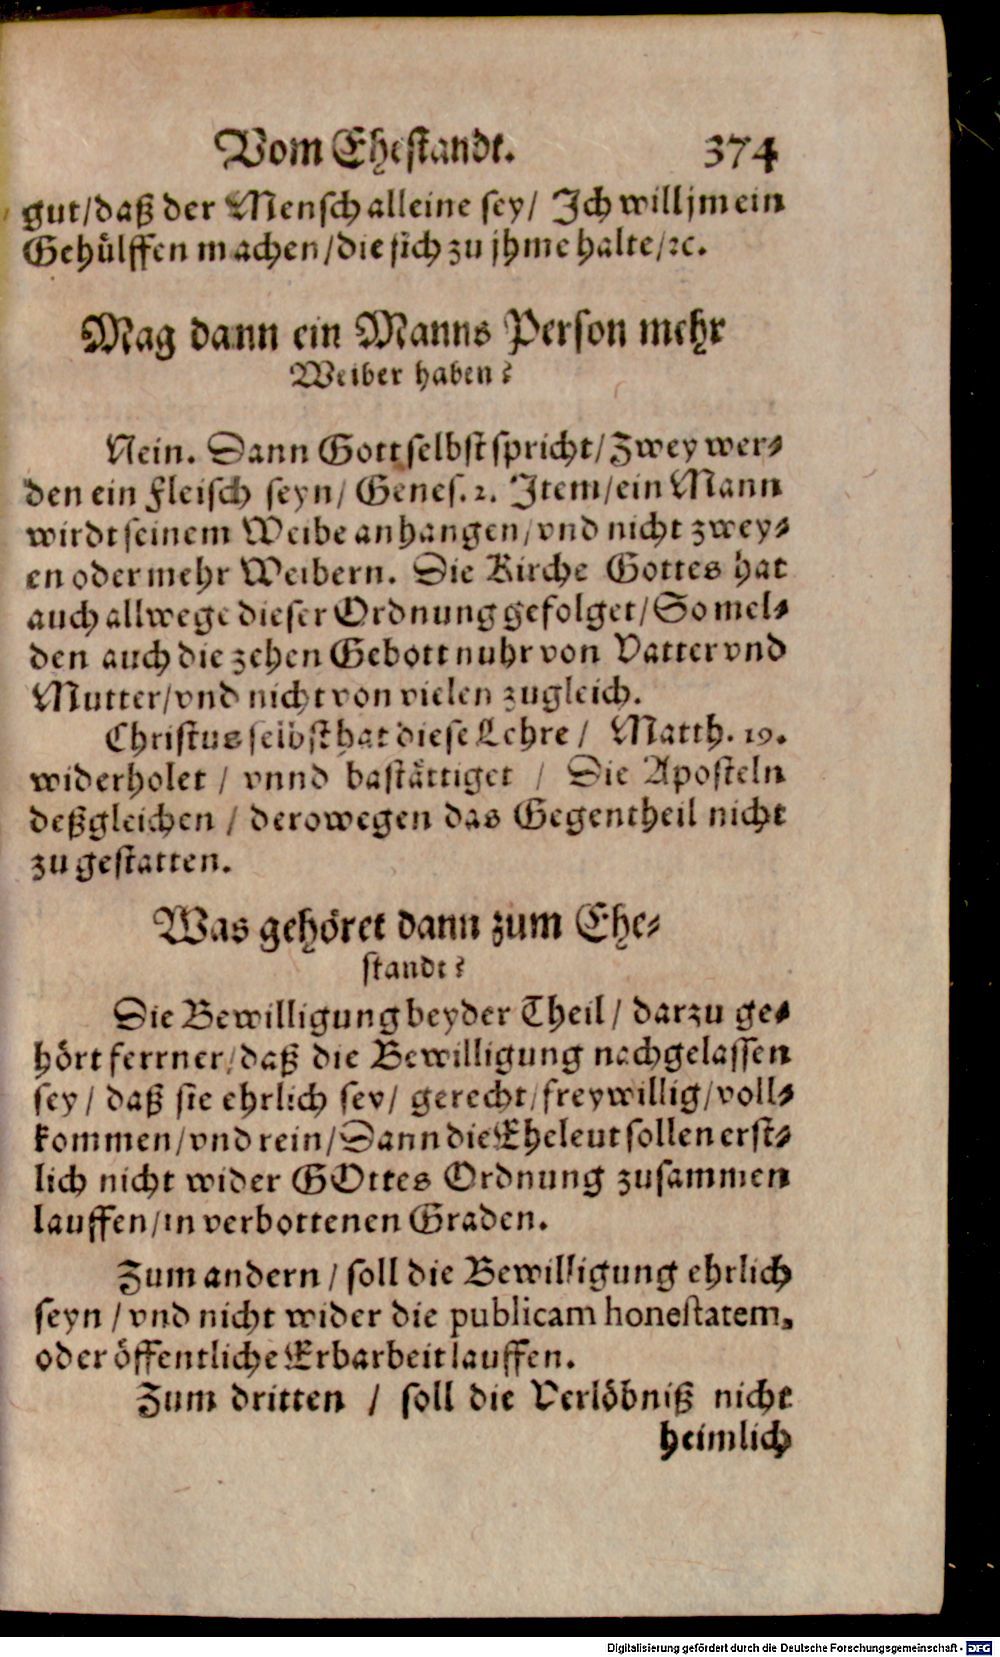 Vom Ehestandt. 374
gut/daß der Mensch alleine sey/ Ich will jm ein
Gehülffen machen/die sich zu jhme halte/ꝛc.
Mag dann ein Manns Person mehr
Weiber haben?
Nein. Dann Gott selbst spricht/Zwey wer-
den ein Fleisch seyn/ Genes. 2. Item/ein Mann
wirdt seinem Weibe anhangen/vnd nicht zwey-
en oder mehr Weibern. Die Kirche Gottes hat
auch allwege dieser Ordnung gefolget/So mel-
den auch die zehen Gebott nuhr von Vatter vnd
Mutter/vnd nicht von vielen zugleich.
Christus selbst hat diese Lehre / Matth. 19.
widerholet / vnnd bastättiget / Die Aposteln
deßgleichen / derowegen das Gegentheil nicht
zu gestatten.
Was gehöret dann zum Ehe-
standt?
Die Bewilligung beyder Theil/ darzu ge-
hört ferrner/daß die Bewilligung nachgelassen
sey/ daß sie ehrlich sey/ gerecht/freywillig/voll-
kommen/vnd rein/Dann die Eheleut sollen erst-
lich nicht wider GOttes Ordnung zusammen
lauffen/in verbottenen Graden.
Zum andern/soll die Bewilligung ehrlich
seyn/vnd nicht wider die publicam honestatem,
oder öffentliche Erbarbeit lauffen.
Zum dritten / soll die Verlöbniß nicht
heimlich
Digitalisierung gefördert durch die Deutsche Forschungsgemeinschaft - DFG